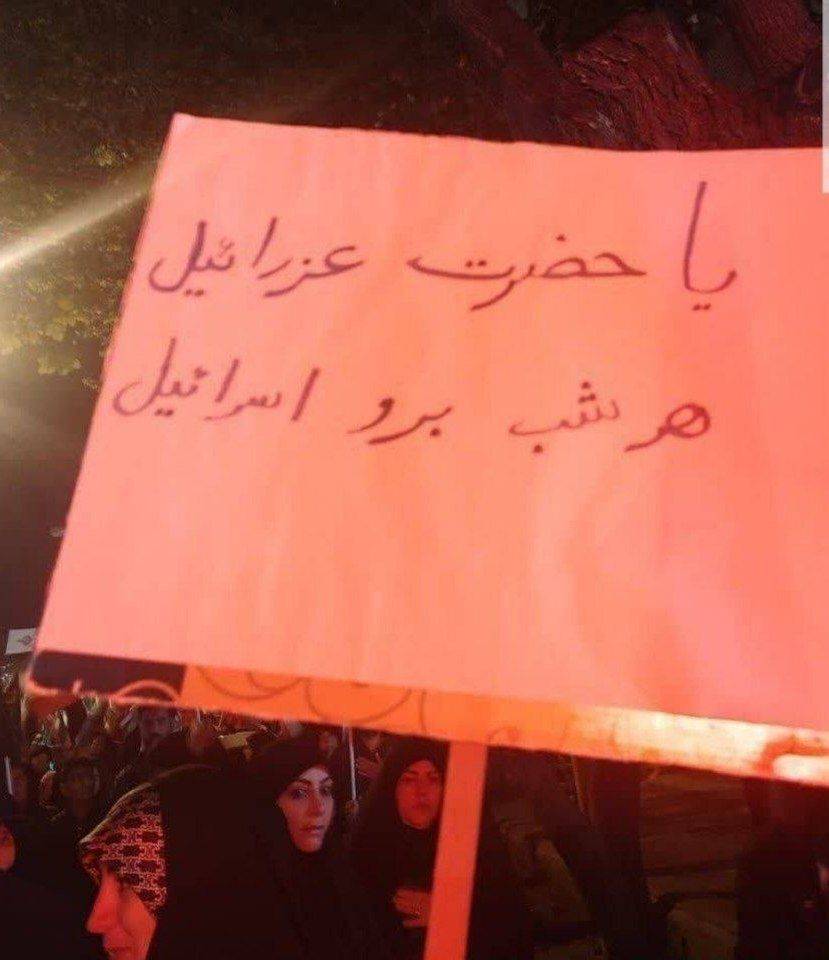 یا حضرت عزرائیل
هر شب برو اسرائیل